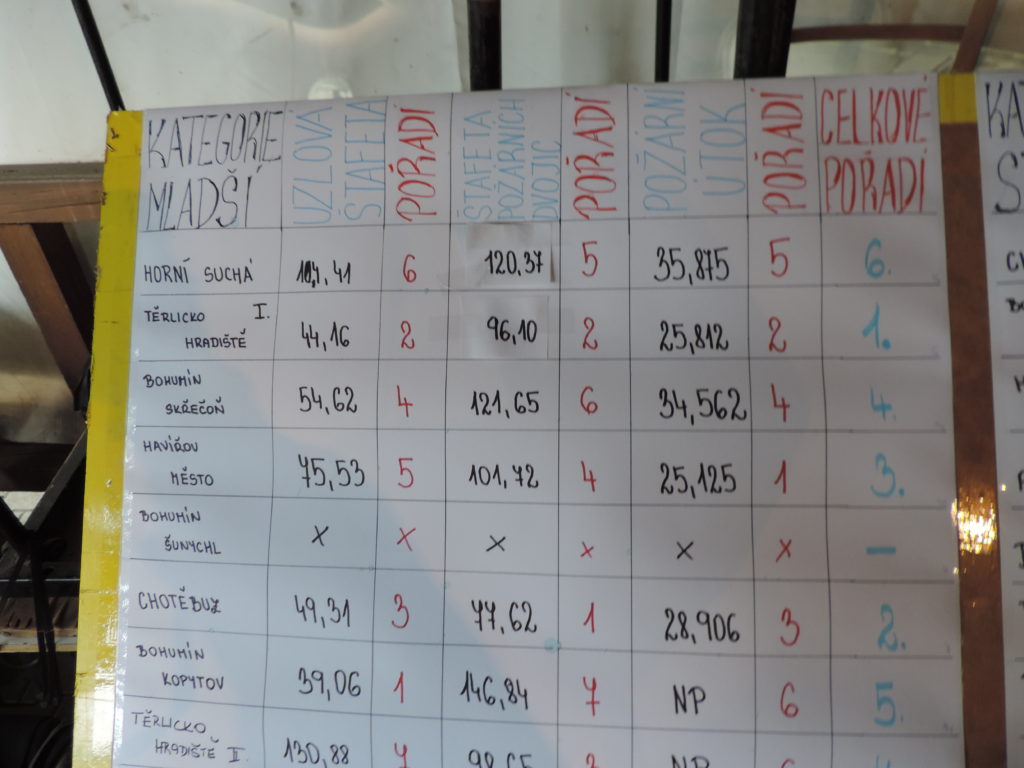 KATEGORIE MLADŠÍ UZLOVÁ ŠTAFETA POŘADÍ ŠTAFETA POŽÁRNÍCH DVOJIC POŘADÍ POŽÁRNÍ ÚTOK POŘADÍ CELKOVÉ POŘADÍ
HORNÍ SUCHÁ 6 120,37 5 35,875 5 6.
TĚRLICKO HRADIŠTĚ I. 44,16 2 96,10 2 25,812 2 1.
BOHUMÍN SKŘEČOŇ 54,62 4 121,65 6 34,562 4 4.
HAVÍŘOV MĚSTO 75,53 5 101,72 4 25,125 1 3.
BOHUMÍN ŠUNYCHL x x x x x x –
CHOTĚBUZ 49,31 3 77,62 1 28,906 3 2.
BOHUMÍN KOPYTOV 39,06 1 146,84 7 NP 6 5.
TĚRLICKO HRADIŠTĚ II. 130,88 7 NP